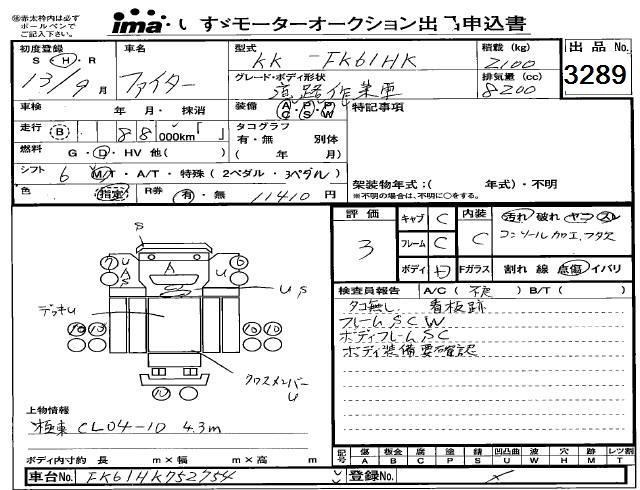 ※赤太枠内は必ず ボールペンで ご記入下さい。
ima いすゞモーターオークション出品申込書
初度登録 車名 型式 積載 (kg) 出品 No.
S H・R 13/9月 ファイター KK-FK61HK 2100 3289
グレード・ボディ形状 道路作業車 排気量 (cc) 8200
車検 年 月・抹消 装備 A/C P/S P/W 特記事項
走行 B 88 000km「 」 タコグラフ 有・無 別体
燃料 G・D・HV 他( ) ( 年 月)
シフト 6 M/T・A/T・特殊 (2ペダル・3ペダル) 架装物年式:( 年式)・不明
色 指定 R券 有・無 11410円 ※不明の場合は、不明に○をする。
評価 3 キャブ C 内装 C 汚れ 破れ ヤニ スレ
フレーム C コンソール加工、フタ欠
ボディ Fガラス 割れ 線 点傷 イバリ
検査員報告 A/C( 不良 ) B/T( )
タコ無し 看板跡
フレームSCW
ボディフレームSC
ボディ装備要確認
S
7 U A S A U 6
U S
デッキU
10 10 10 10
クロスメンバーU
10
上物情報
極東 CL04-10 4.3m
記号 傷 A 板金 B 腐 C 塗 P 錆 S 凹凸曲 U 波 W 穴 H 跡 M レツ割 T
ボディ内寸約 長 m×幅 m×高 m
車台No. FK61HK752754 登録No.